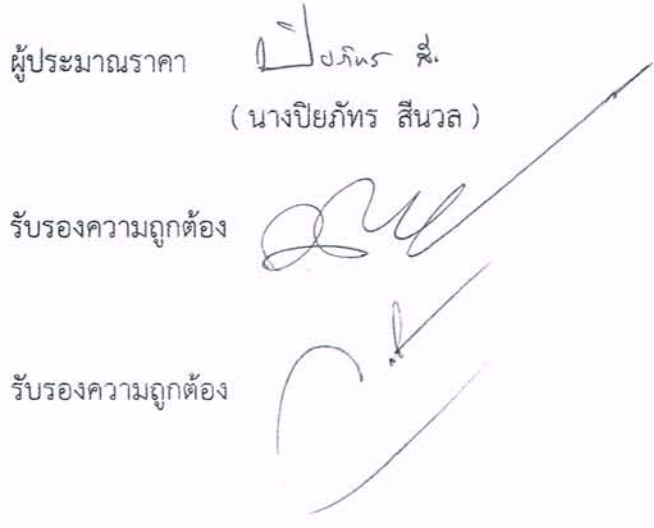 ผู้ประมาณราคา ปิยภัทร สี.
( นางปิยภัทร สีนวล )
รับรองความถูกต้อง
รับรองความถูกต้อง